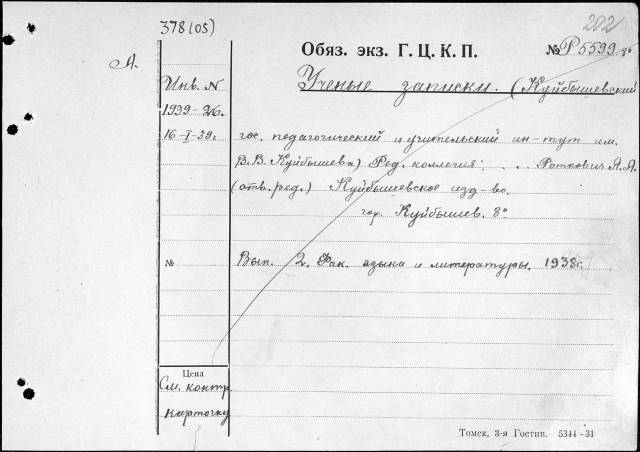 202
378(05)
А.
Обяз. экз. Г. Ц. К. П. № Р5599 8°
Ученые записки. (Куйбышевский
Инв. N
1939-26.
16-I-39г.
гос. педагогический и учительский ин-тут им.
В.В. Куйбышева) Ред. коллегия: . . Роткович Я.А.
(отв. ред.) Куйбышевское изд-во,
гор. Куйбышев. 8°
№ Вып. 2. Фак. языка и литературы. 1938г.
Цена
См. контр.
карточку
Томск, 3-я Гостип. 5344-31